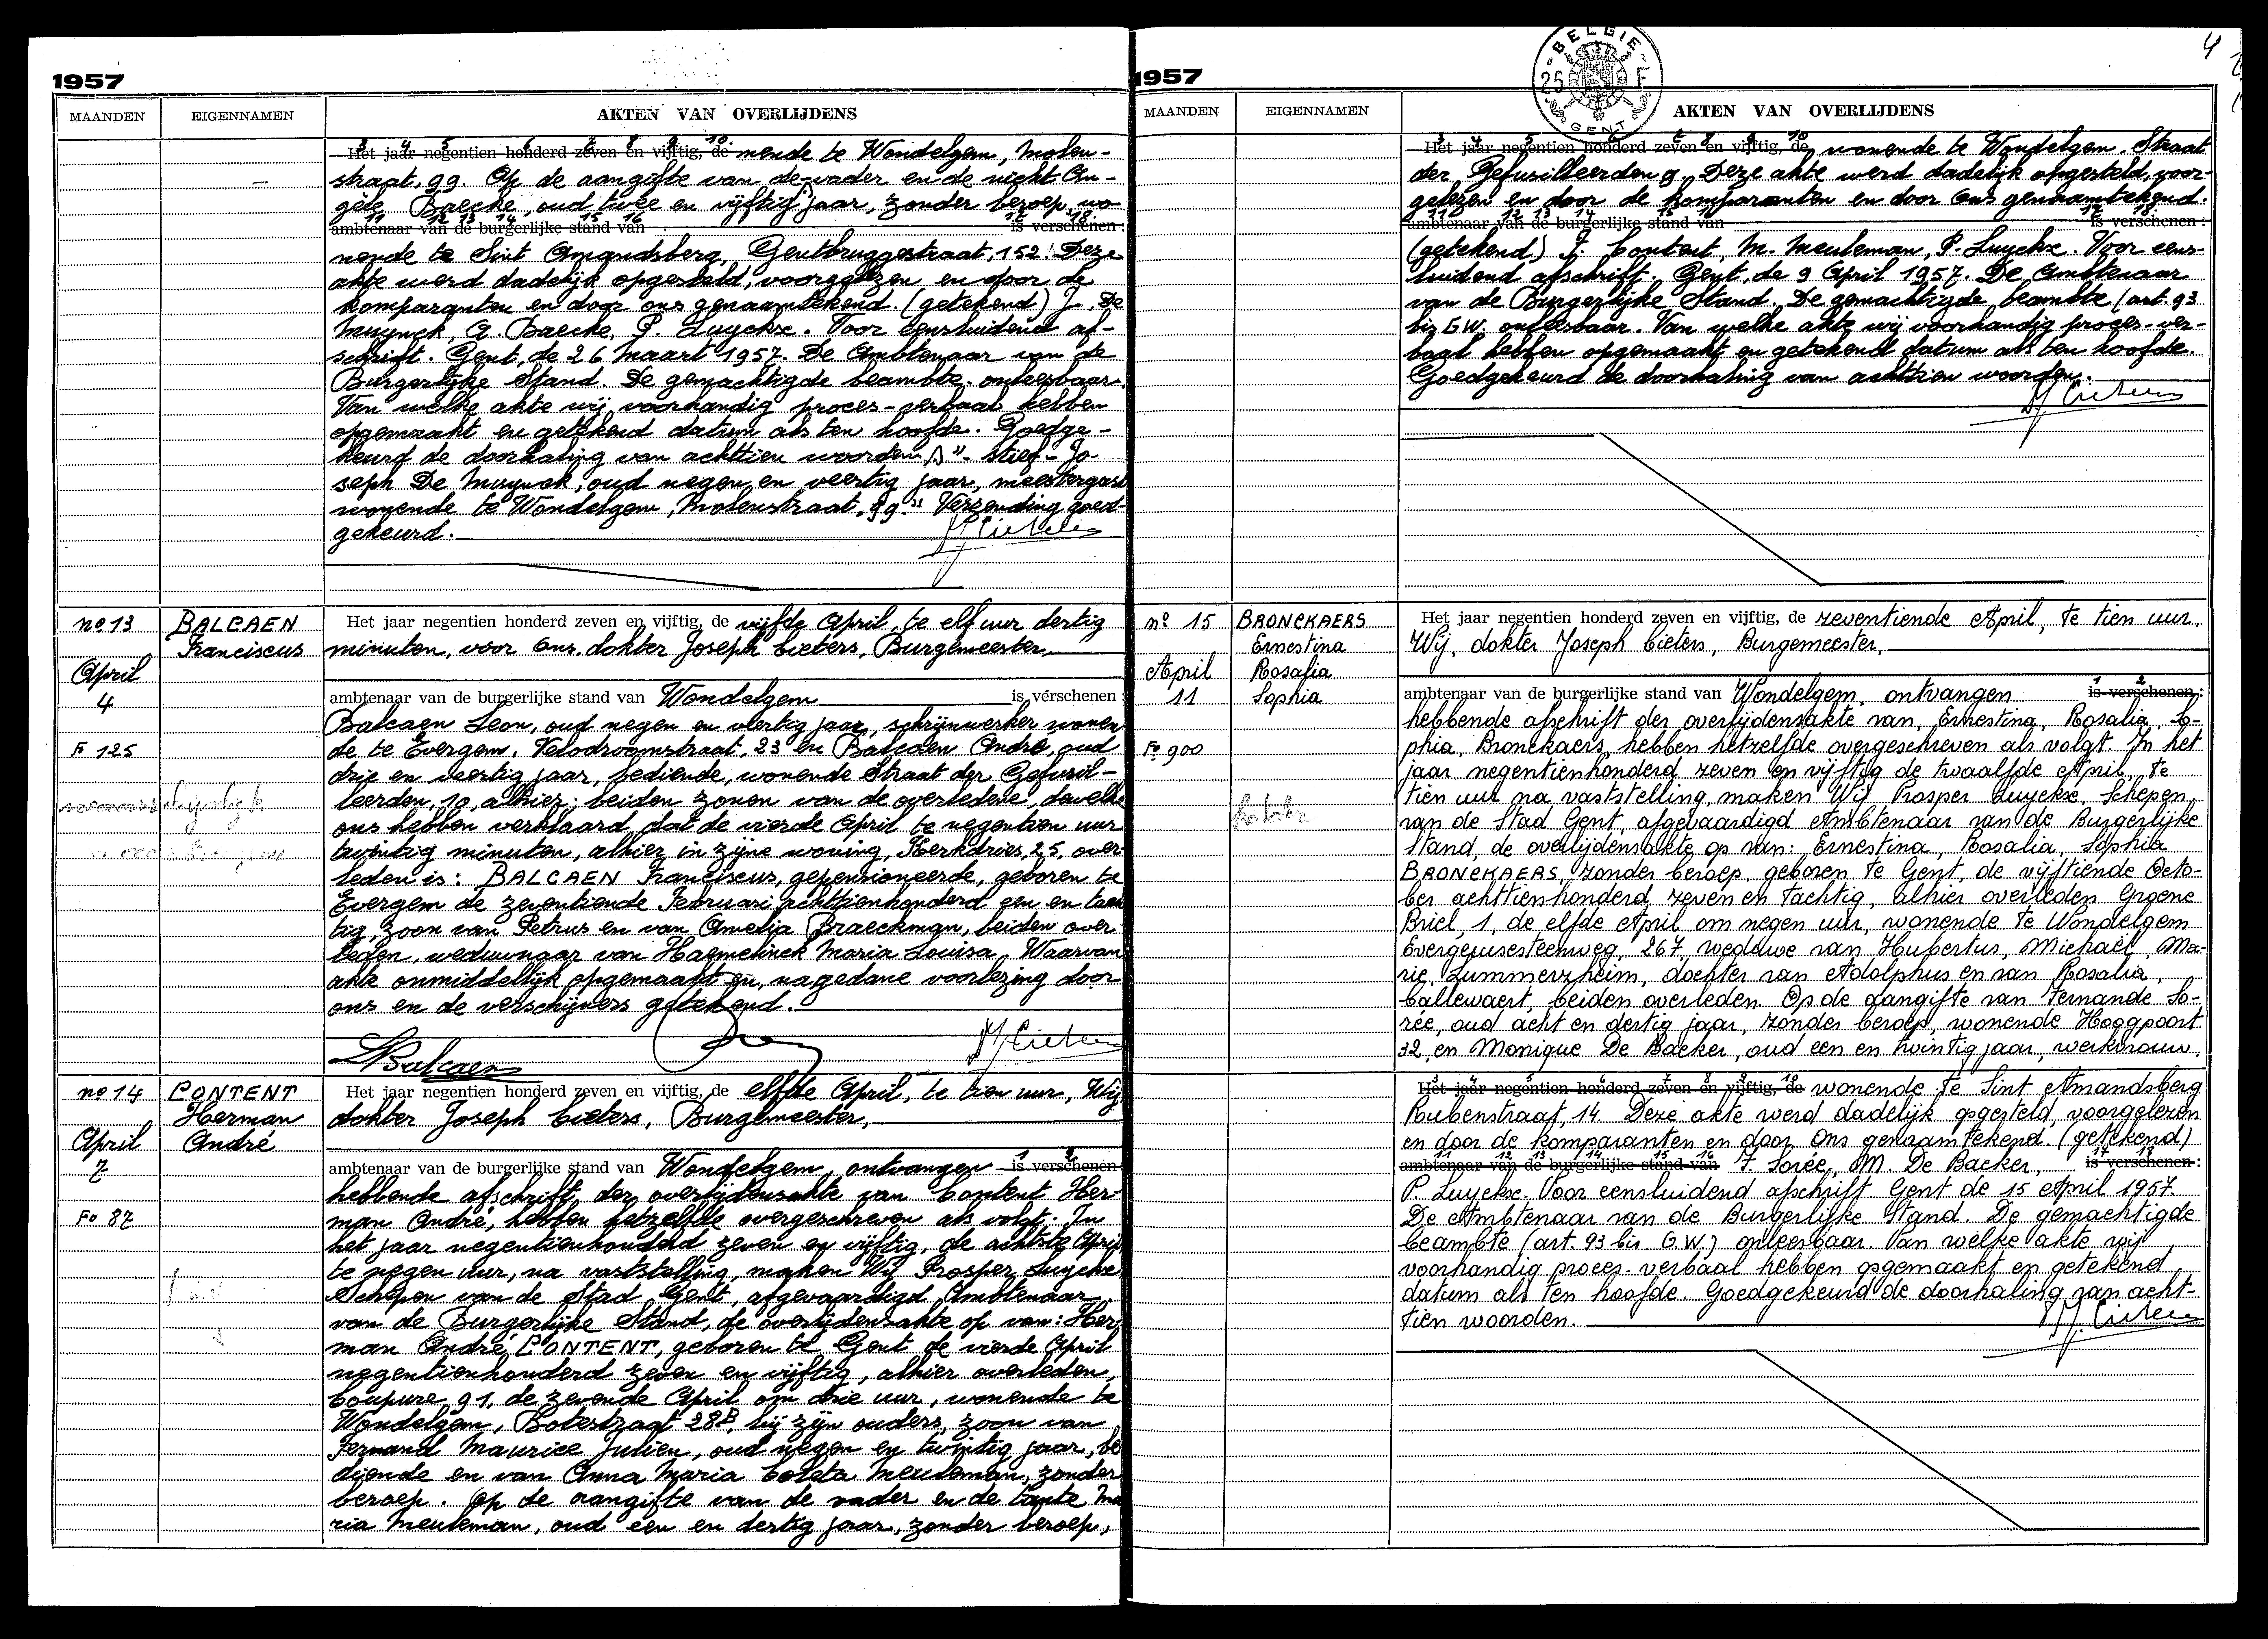 1957
MAANDEN EIGENNAMEN AKTEN VAN OVERLIJDENS
3 4 5 6 7 8 9 10
Het jaar negentien honderd zeven en vijftig, de nende te Wondelgem, Molen-
straat, 99. Op de aangifte van de vader en de nicht An-
gele Baecke, oud twee en vijftig jaar, zonder beroep, wo
11 12 13 14 15 16 17 18
ambtenaar van de burgerlijke stand van is verschenen:
nende te Sint Amandsberg, Gentbruggestraat, 152. Deze
akte werd dadelijk opgesteld, voorgelezen en door de
komparanten en door ons genaamtekend. (getekend) J. De
Muynck, A. Baecke, P. Luyckx. Voor eensluidend af-
schrift. Gent, de 26 Maart 1957. De Ambtenaar van de
Burgerlijke Stand. De gemachtigde beambte. onleesbaar.
Van welke akte wij voorhandig proces-verbaal hebben
opgemaakt en getekend datum als ten hoofde. Goedge-
keurd de doorhaling van achttien woorden. "- stief- Jo-
seph De Muynck, oud negen en veertig jaar, meestergast
wonende te Wondelgem, Molenstraat, 99." Verzending goed-
gekeurd.
no 13 BALCAEN Het jaar negentien honderd zeven en vijftig, de vijfde April, te elf uur dertig
Franciscus minuten, voor Ons, dokter Joseph Cieters, Burgemeester,
April
4 ambtenaar van de burgerlijke stand van Wondelgem is verschenen:
Balcaen Leon, oud negen en veertig jaar, schrijnwerker wonen
F 125 de te Evergem, Velodroomstraat, 23 en Balcaen André, oud
drie en veertig jaar, bediende, wonende Straat der Gefusil-
leerden, 19, alhier; beiden zonen van de overledene, dewelke
ons hebben verklaard dat de vierde April te negentien uur
twintig minuten, alhier in zijne woning, Kerkdries, 25, over-
leden is: BALCAEN Franciscus, gepensioneerde, geboren te
Evergem de zeventiende Februari achttienhonderd een en tach
tig, zoon van Petrus en van Amelia Braeckman, beiden over-
leden, weduwnaar van Haemelinck Maria Louisa. Waarvan
akte onmiddellijk opgemaakt en, nagedane voorlezing door
ons en de verschijners getekend.
LBalcaen
no 14 CONTENT Het jaar negentien honderd zeven en vijftig, de elfde April, te tien uur, Wij
Herman dokter Joseph Cieters, Burgemeester,
April André
7 ambtenaar van de burgerlijke stand van Wondelgem, ontvangen is verschenen
1 2
hebbende afschrift der overlijdensakte van Content Her-
Fo 87 man André, hebben hetzelfde overgeschreven als volgt: In
het jaar negentienhonderd zeven en vijftig, de achtste April
te negen uur, na vaststelling, maken Wij Prosper Luyckx
Schepen van de Stad Gent, afgevaardigd Ambtenaar
van de Burgerlijke Stand, de overlijdensakte op van: Her
man André, CONTENT, geboren te Gent de vierde April
negentienhonderd zeven en vijftig, alhier overleden,
Coupure, 91, de zevende April om drie uur, wonende te
Wondelgem, Botestraat 28B, bij zijn ouders, zoon van
Fernand Maurice Julien, oud negen en twintig jaar, be
diende en van Anna Maria Coleta Meuleman, zonder
beroep. Op de aangifte van de vader en de tante Ma
ria Meuleman, oud één en dertig jaar, zonder beroep,
4
1957
BELGIE
25 F
GENT
MAANDEN EIGENNAMEN AKTEN VAN OVERLIJDENS
3 4 5 6 7 8 9 10
Het jaar negentien honderd zeven en vijftig, de wonende te Wondelgem. Straat
der Gefusilleerden 9. Deze akte werd dadelijk opgesteld, voor-
gelezen en door de komparanten en door Ons genaamtekend.
11 12 13 14 15 16 17 18
ambtenaar van de burgerlijke stand van is verschenen:
(getekend) F. Content, M. Meuleman, P. Luyckx. Voor eens-
luidend afschrift. Gent, de 9 April 1957. De Ambtenaar
van de Burgerlijke Stand. De gemachtigde beambte (art. 93
bis G.W. onleesbaar. Van welke akte wij voorhandig proces-ver-
baal hebben opgemaakt en getekend datum als ten hoofde.
Goedgekeurd de doorhaling van achttien woorden.
no 15 BRONCKAERS Het jaar negentien honderd zeven en vijftig, de zeventiende April, te tien uur,
Ernestina Wij, dokter Joseph Cieters, Burgemeester,
April Rosalia
11 Sophia ambtenaar van de burgerlijke stand van Wondelgem, ontvangen is verschenen:
1 2
hebbende afschrift der overlijdensakte van, Ernestina, Rosalia, So-
Fo 900 phia, Bronckaers, hebben hetzelfde overgeschreven als volgt. In het
jaar negentienhonderd zeven en vijftig de twaalfde April, te
tien uur na vaststelling, maken Wij Prosper Luyckx, Schepen
van de Stad Gent, afgevaardigd Ambtenaar van de Burgerlijke
Stand, de overlijdensakte op van: Ernestina, Rosalia, Sophia
BRONCKAERS, zonder beroep, geboren te Gent, de vijftiende Octo-
ber achttienhonderd zeven en tachtig, alhier overleden Groene
Briel, 1, de elfde April om negen uur, wonende te Wondelgem
Evergemsesteenweg, 267, weduwe van Hubertus, Michaël, Ma-
rie, Zummerzheim, dochter van Adolphus en van Rosalia,
Callewaert, beiden overleden. Op de aangifte van Fernande So-
rée, oud acht en dertig jaar, zonder beroep, wonende Hoogpoort
32, en Monique De Backer, oud een en twintig jaar, werkvrouw,
3 4 5 6 7 8 9 10
Het jaar negentien honderd zeven en vijftig, de wonende te Sint Amandsberg
Rubenstraat, 14. Deze akte werd dadelijk opgesteld, voorgelezen
en door de komparanten en door Ons genaamtekend. (getekend)
11 12 13 14 15 16 17 18
ambtenaar van de burgerlijke stand van F. Sorée, M. De Backer, is verschenen:
P. Luyckx. Voor eensluidend afschrift. Gent de 15 April 1957.
De Ambtenaar van de Burgerlijke Stand. De gemachtigde
beambte (art. 93 bis G.W.) onleesbaar. Van welke akte wij
voorhandig proces-verbaal hebben opgemaakt en getekend
datum als ten hoofde. Goedgekeurd de doorhaling van acht-
tien woorden.